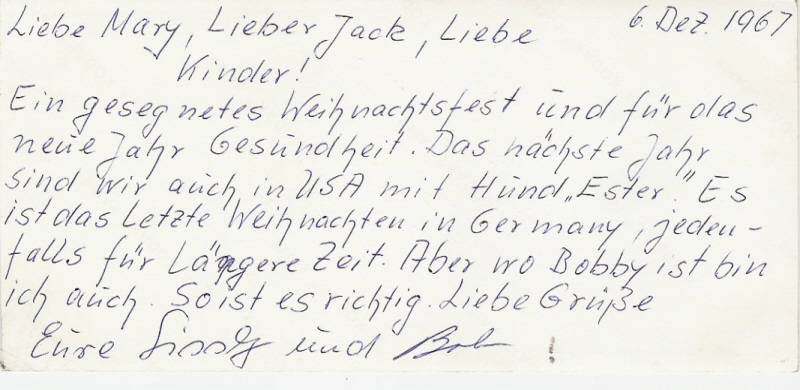 6. Dez. 1967
Liebe Mary, Lieber Jack, Liebe
Kinder!
Ein gesegnetes Weihnachtsfest und für das
neue Jahr Gesundheit. Das nächste Jahr
sind wir auch in USA mit Hund „Ester." Es
ist das Letzte Weihnachten in Germany, jeden-
falls für Längere Zeit. Aber wo Bobby ist bin
ich auch. So ist es richtig. Liebe Grüße
Eure Sissly und Bob